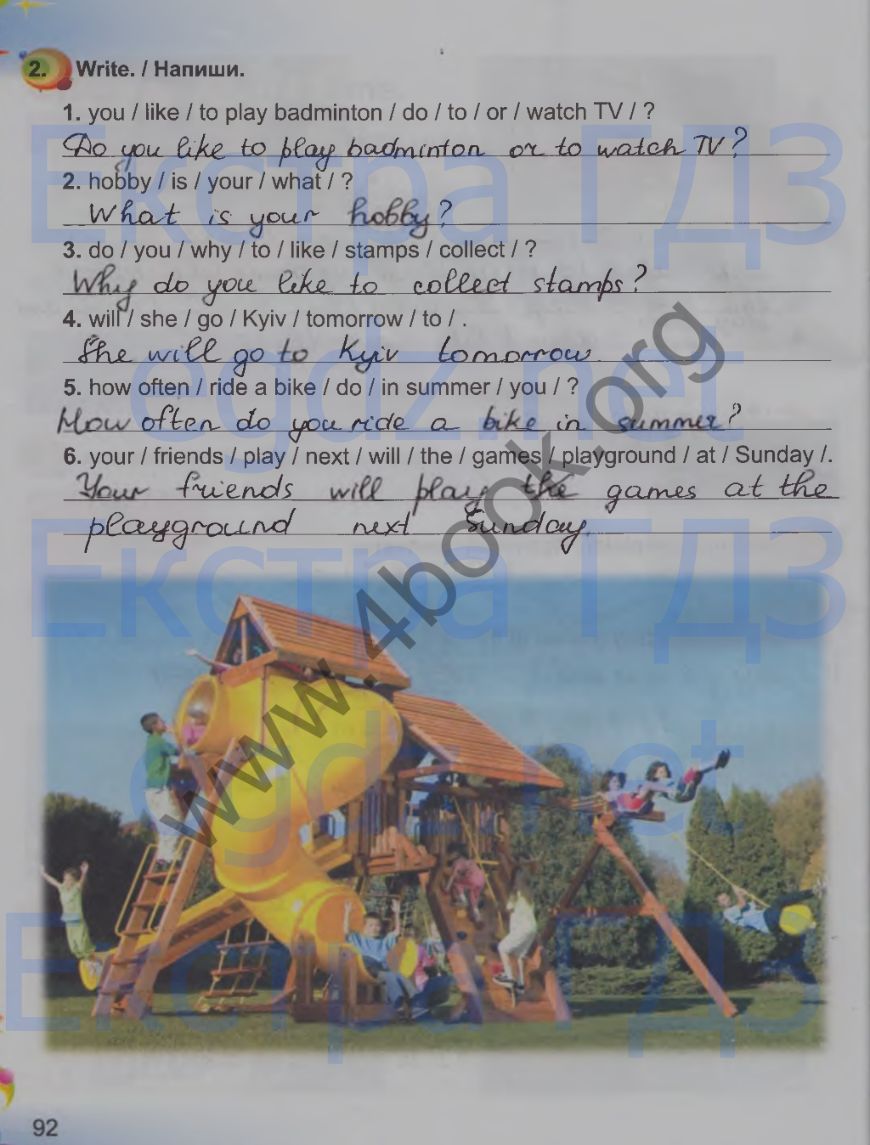 2. Write. / Напиши.
1. you / like / to play badminton / do / to / or / watch TV / ?
Do you like to play badminton or to watch TV?
2. hobby / is / your / what / ?
What is your hobby?
3. do / you / why / to / like / stamps / collect / ?
Why do you like to collect stamps?
4. will / she / go / Kyiv / tomorrow / to / .
She will go to Kyiv tomorrow.
5. how often / ride a bike / do / in summer / you / ?
How often do you ride a bike in summer?
6. your / friends / play / next / will / the / games / playground / at / Sunday /.
Your friends will play the games at the
playground next Sunday.
Екстра ГДЗ
egdz.net
Екстра ГДЗ
egdz.net
Екстра ГДЗ
www.4book.org
92